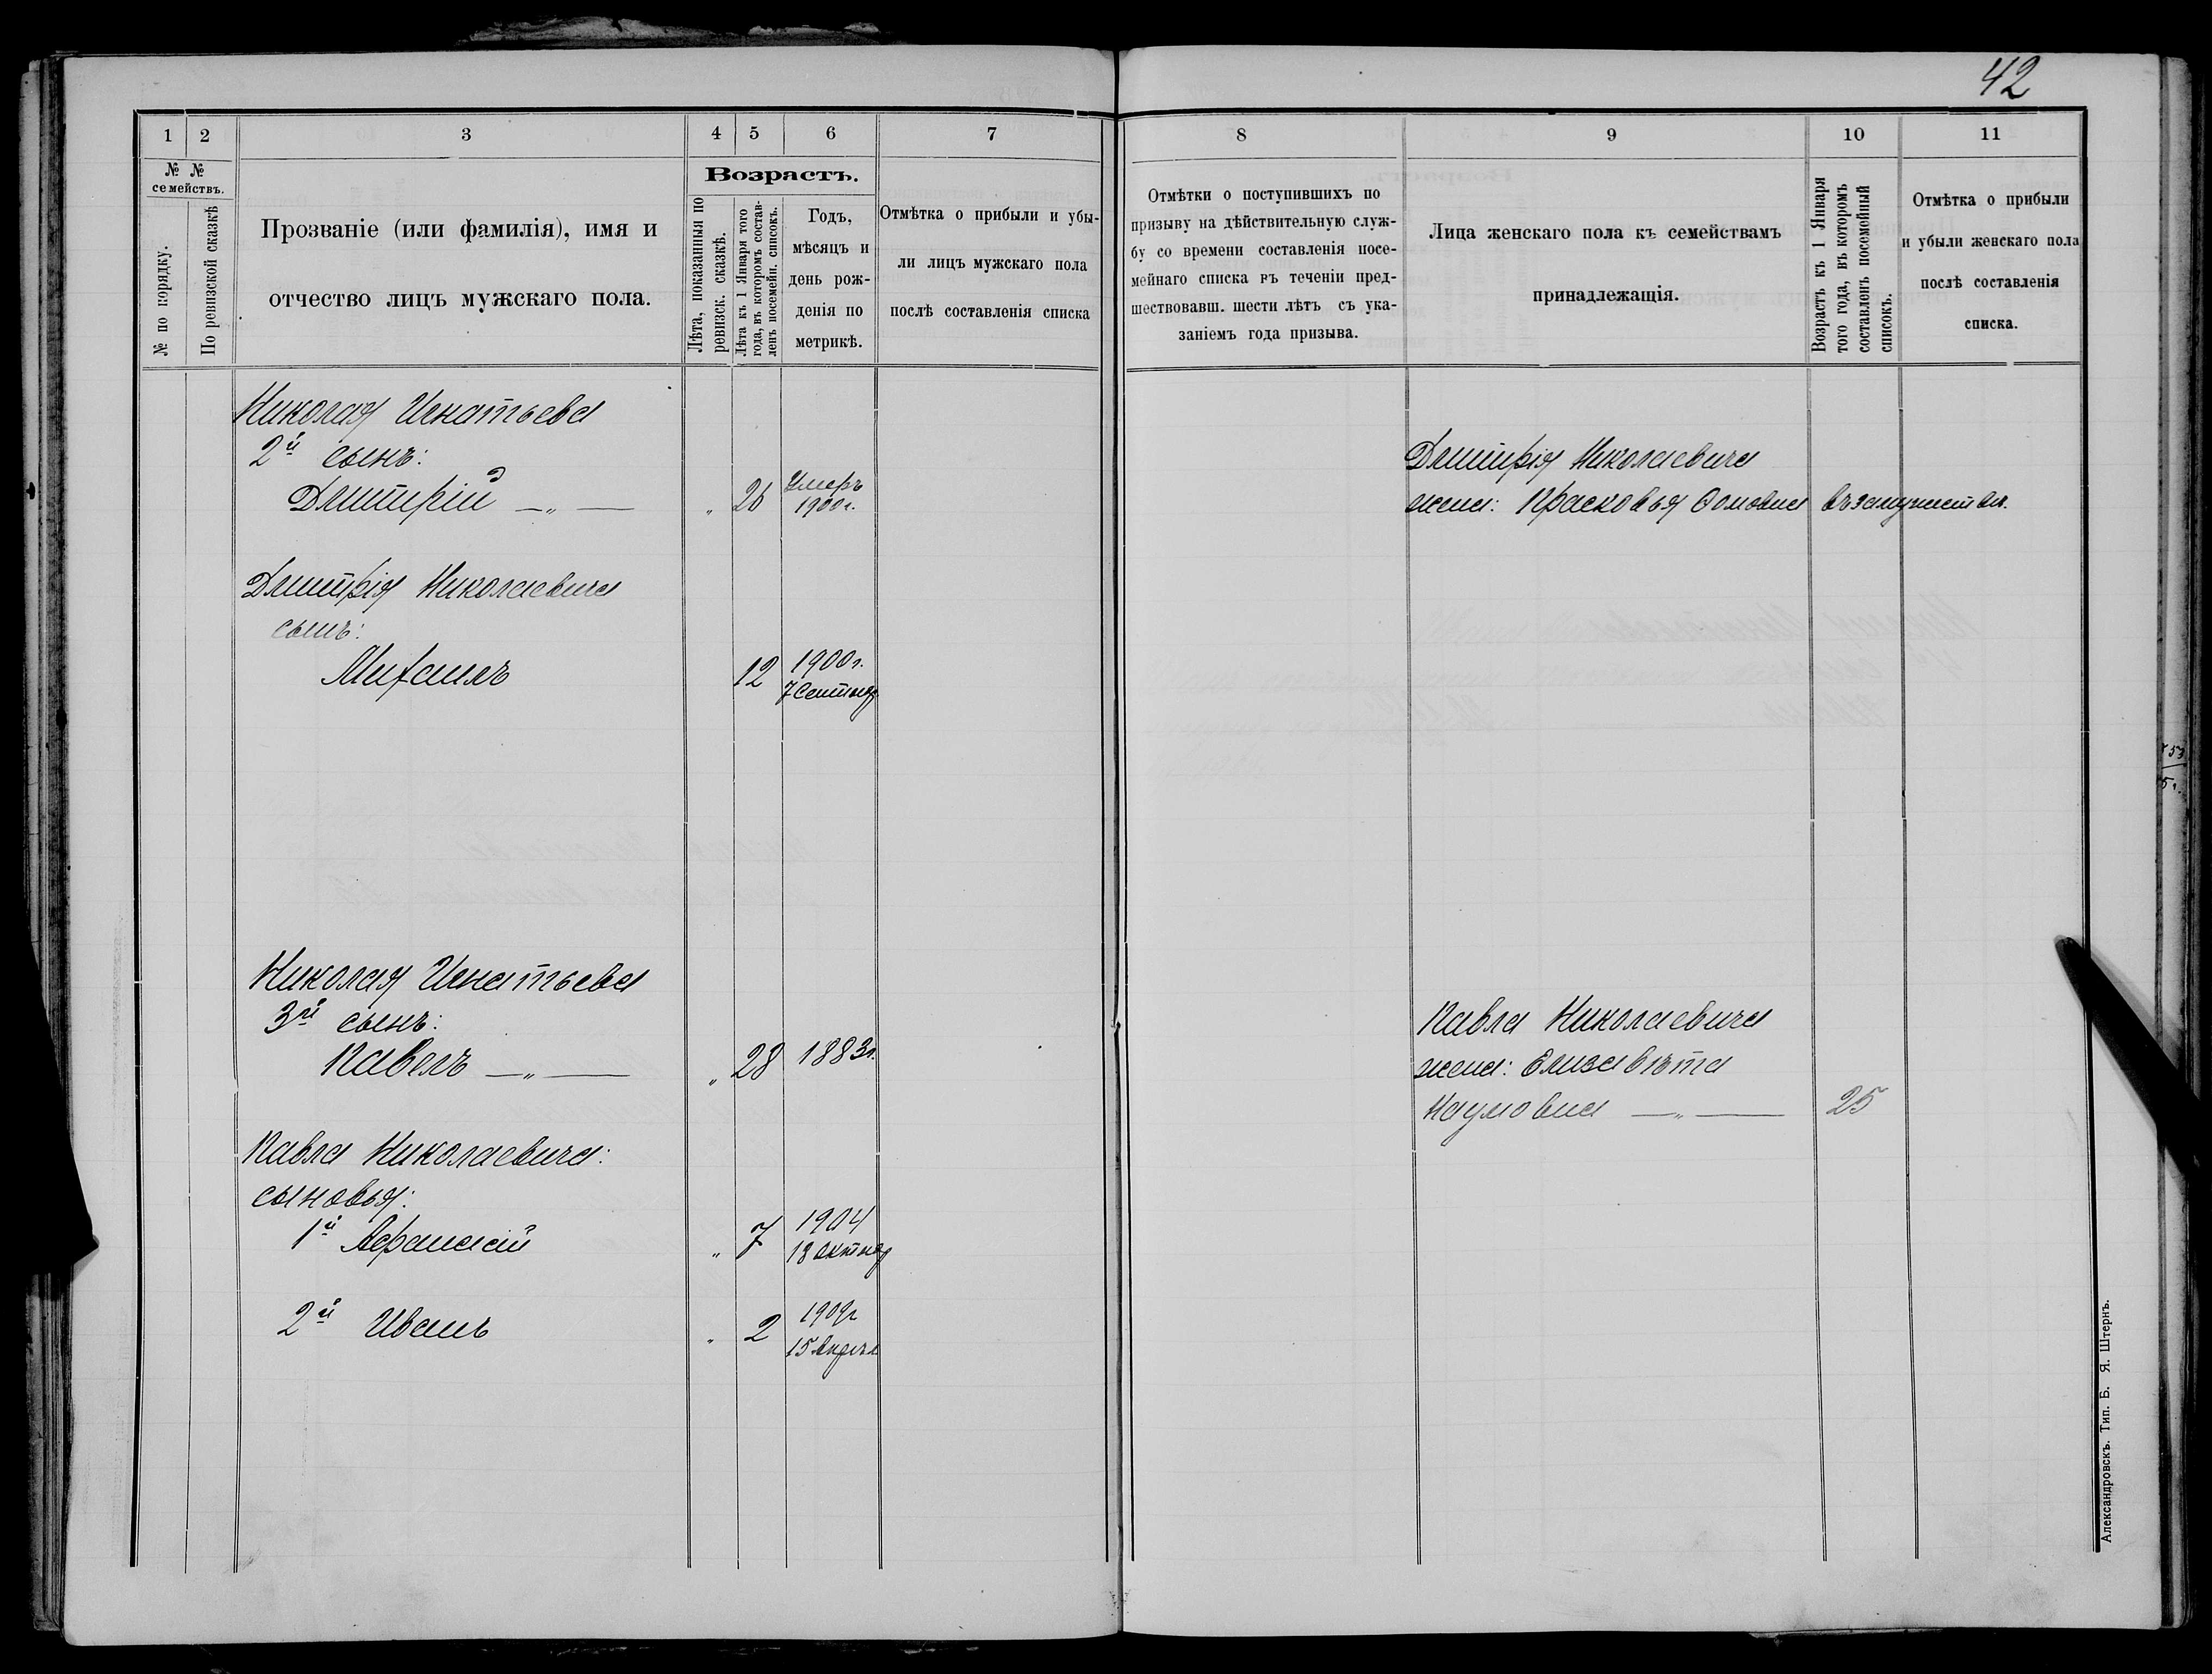 42
1 2 3 4 5 6 7
№ № семействъ.
№ по порядку.
По ревизской сказкѣ
Прозваніе (или фамилія), имя и
отчество лицъ мужскаго пола.
Возрастъ.
Лѣта, показанныя по
ревизск. сказкѣ.
Лѣта къ 1 Января того
года, въ которомъ состав-
ленъ посемейн. списокъ.
Годъ,
мѣсяцъ и
день рож-
денія по
метрикѣ.
Отмѣтка о прибыли и убы-
ли лицъ мужскаго пола
послѣ составленія списка
Николая Игнатьева
2й сынъ:
Дмитрій —„— „ 26 Умеръ
1900г.
Дмитрія Николаевича
сынъ:
Михаилъ 12 1900г.
7 Сентяб
Николая Игнатьева
3й сынъ:
Павелъ —„— „ 28 1883г.
Павла Николаевича:
сыновья:
1й Афанасій „ 7 1904
18 Октяб
2й Иванъ „ 2 1909г
15 Апрѣл
8 9 10 11
Отмѣтки о поступившихъ по
призыву на дѣйствительную служ-
бу со времени составленія посе-
мейнаго списка въ теченіи пред-
шествовавш. шести лѣтъ съ ука-
заніемъ года призыва.
Лица женскаго пола къ семействамъ
принадлежащія.
Возрастъ къ 1 Января
того года, въ которомъ
составленъ посемейный
списокъ.
Отмѣтка о прибыли
и убыли женскаго пола
послѣ составленія
списка.
Дмитрія Николаевича
жена: Прасковья Фомовна въ замужествѣ.
Павла Николаевича
жена: Елизавѣта
Наумовна —„— 25
Александровскъ. Тип. Б. Я. Штернъ.